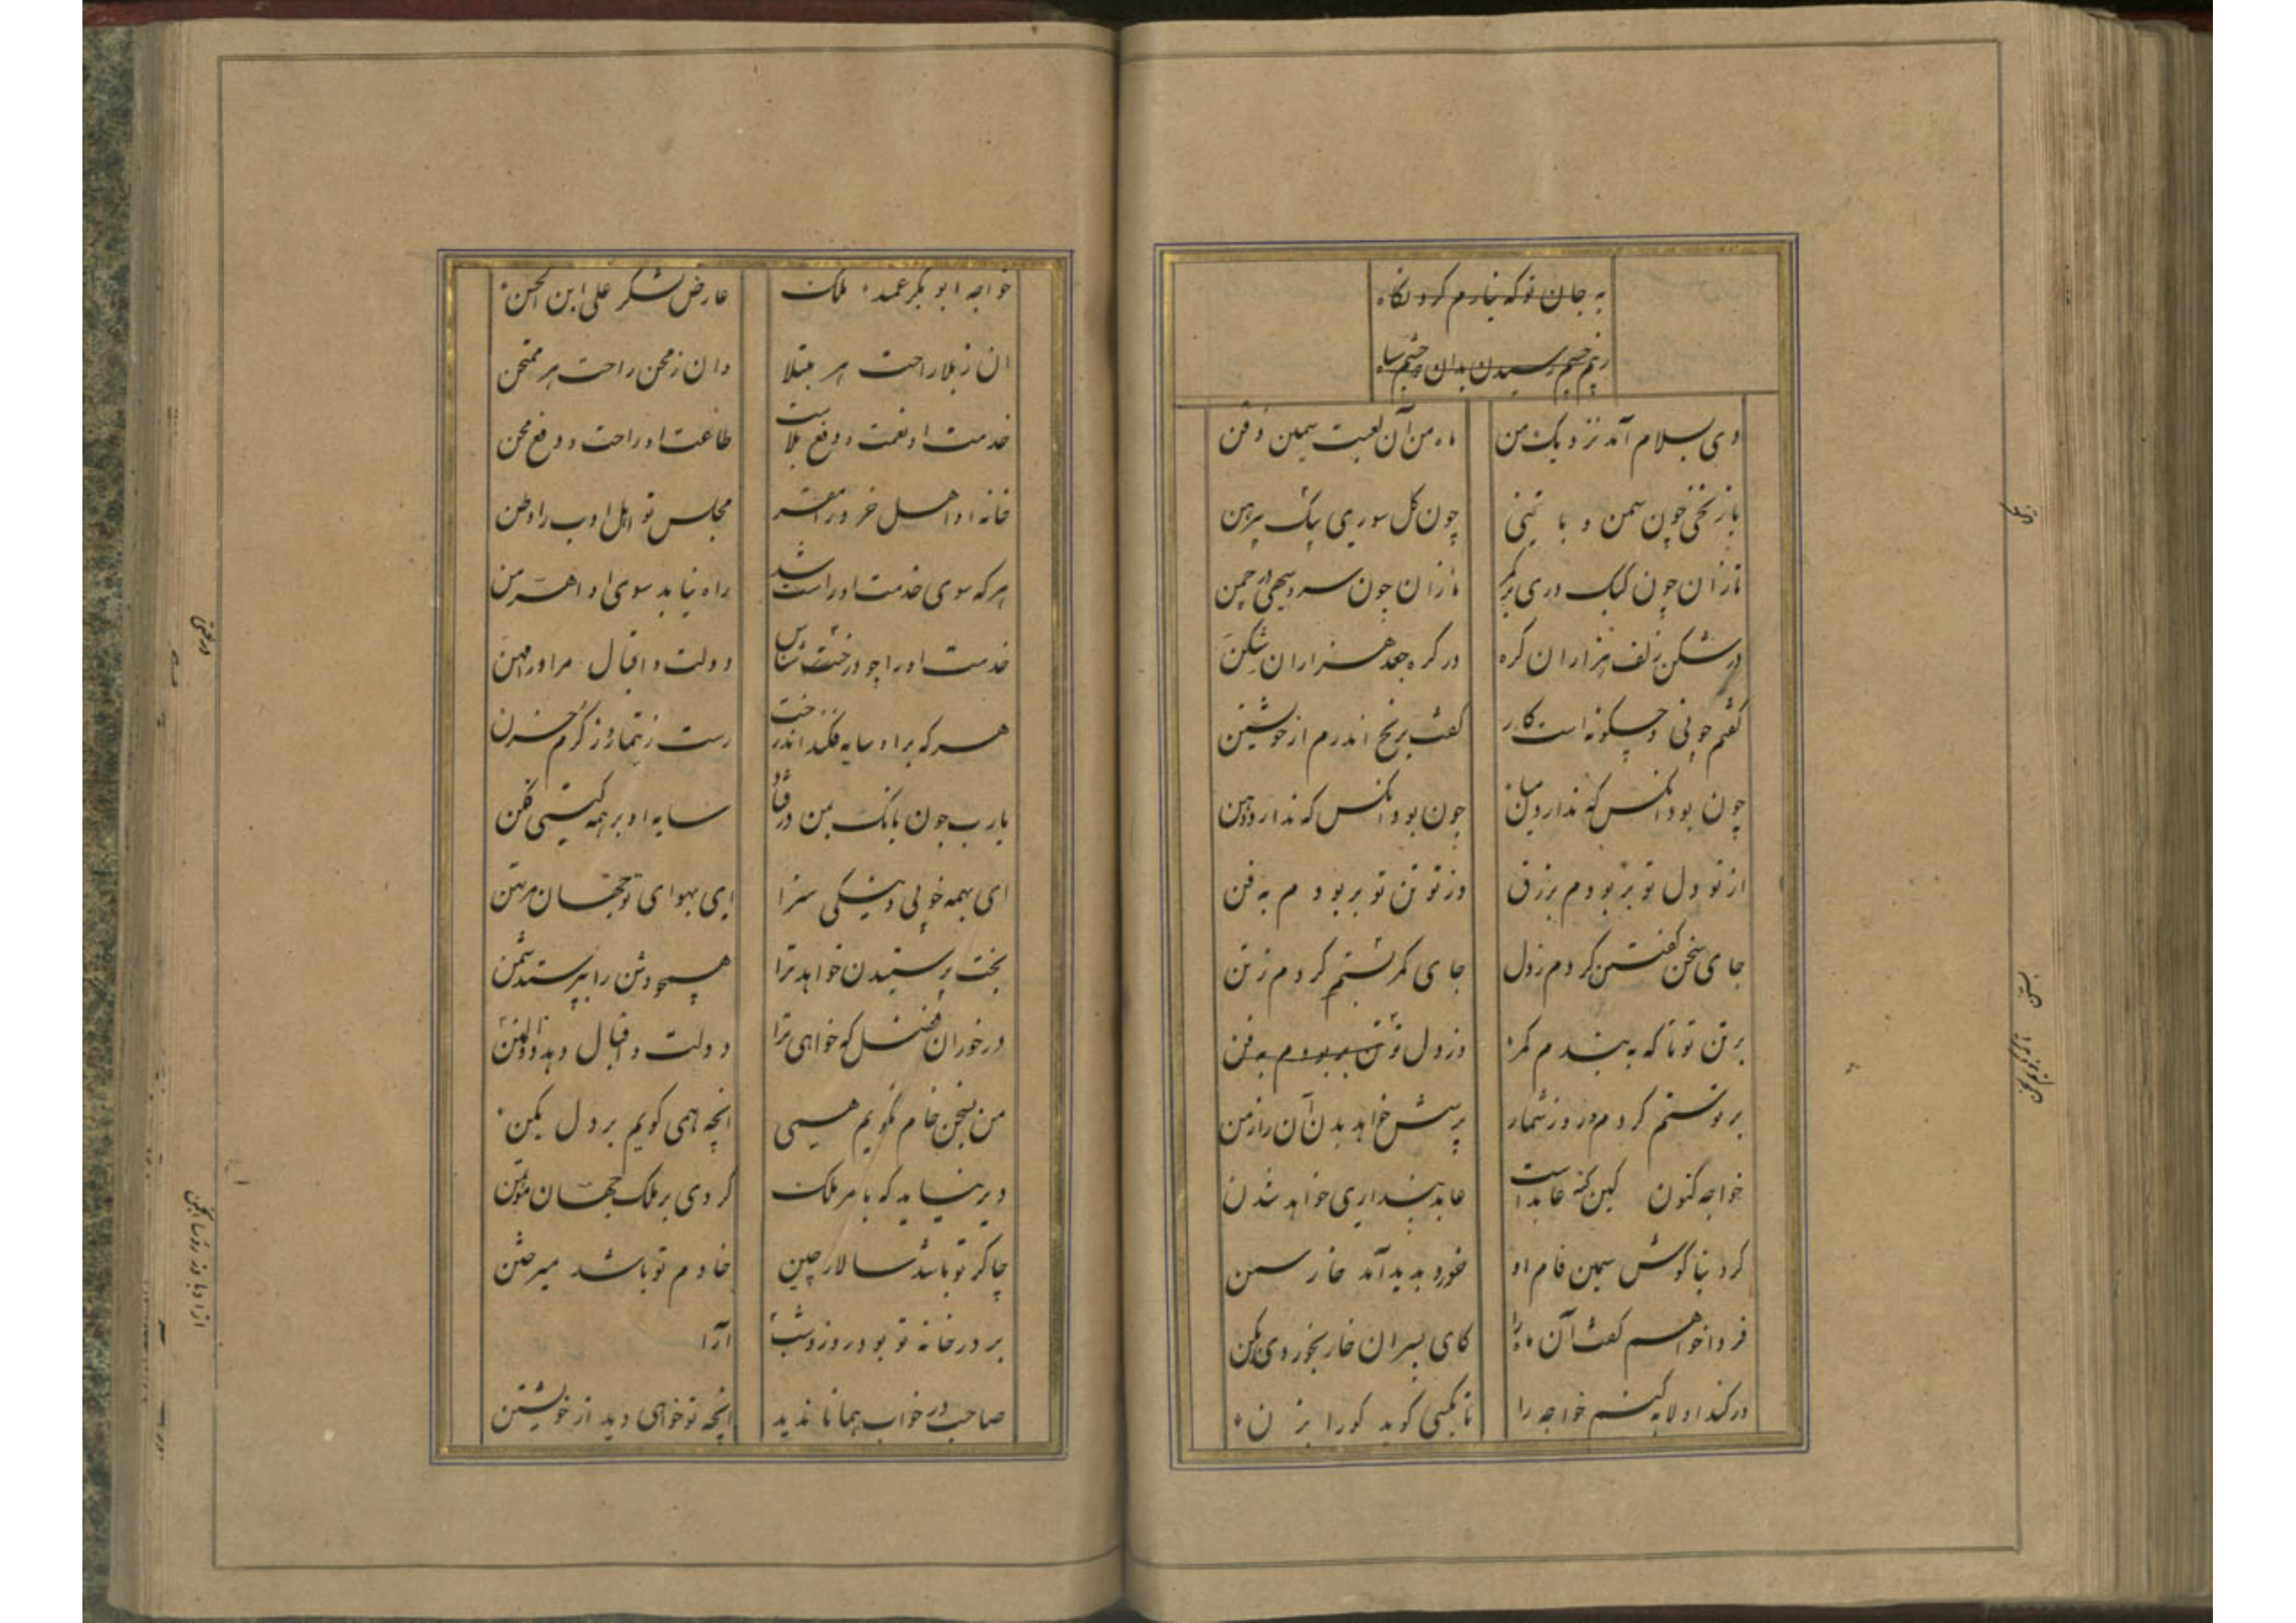 به جان تو که نیارم کرد نگاه
زبیم چشم رسیدن بدان چشم سیاه
دی بسلام آمد نزدیک من ماه من آن لعبت سیمین ذقن
با زنخی چون سمن و با تنی چون گل سوری بیک پیرهن
تازان چون کبک دری بر کمر نازان چون سرو سهی در چمن
در شکن زلف هزاران گره در گره جعد هزاران شکن
گفتم چونی و چگونه است کار گفت برنج اندرم از خویشتن
چون بود آنکس که ندارد میان چون بود آنکس که ندارد دهن
از تو دل تو بربودم بزرق وز تو تن تو بربودم به فن
جای سخن گفتن کردم ز دل جای کمر بستم کردم ز تن
بر تن تو تا که به بندم کمر وز دل تو تن بربودم به فن
بر تو ستم کردم و روز شمار پرسش خواهد بدن آن را ز من
خواجه کنون کین گنه عابد است عابد پنداری خواهد شدن
گرد بناگوش سمین فام او خورد بدید آمد خار سمن
فردا خواهم گفت آن ماه را کای پسر آن خار بخور دی بکن
در کند او لابه کنم خواجه را تا بکسی گوید کورا بزن
خواجه ابوبکر عمید ملک عارض لشکر علی ابن الحسن
آن ز بلا راحت هر مبتلا وان ز محن راحت هر ممتحن
خدمت او نعمت و دفع بلاست طاعت او راحت و دفع محن
خانه او اهل خرد را مقر مجلس تو اهل ادب را وطن
هر که سوی خدمت او راست شد راه نیابد سوی او اهرمن
خدمت او را چو درخت شناس دولت و اقبال مر او را فنن
هر که بر او سایه فکند اندر خت رست ز تیمار و ز گرم حزن
یارب چون بانک بمن در فتاد سایه او بر همه گیتی فکن
ای بهمه خوبی و نیکی سزا ای بهوای تو جهان مرتهن
بخت پرستیدن خواهد ترا همچو وثن را بپرستد شمن
در خور آن فضل که خواهی ترا دولت و اقبال دهد ذوالمنن
من بسخن خام نگویم همی آنچه همی گویم بر دل بکن
دیر نیاید که بامر ملک گردی بر ملک جهان مؤتمن
چاکر تو باشد سالار چین خادم تو باشد میر ختن
بر در خانه تو بود روز و شب آرا
صاحب در خواب همانا ندید آنچه تو خواهی دید از خویشتن